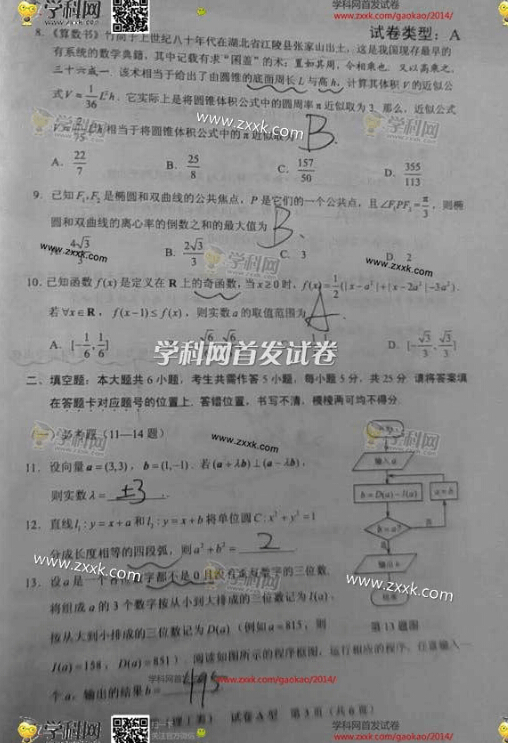 学科网首发试卷
www.zxxk.com/gaokao/2014/
试卷类型：A
8. 《算数书》竹简于上世纪八十年代在湖北省江陵县张家山出土，这是我国现存最早的
有系统的数学典籍，其中记载有求“囷盖”的术：置如其周，令相乘也. 又以高乘之，
三十六成一. 该术相当于给出了由圆锥的底面周长 L 与高 h，计算其体积 V 的近似公
式 V≈1/36 L²h. 它实际上是将圆锥体积公式中的圆周率 π 近似取为 3. 那么，近似公式
V≈2/75 L²h 相当于将圆锥体积公式中的 π 近似取为 B
A. 22/7 B. 25/8 C. 157/50 D. 355/113
9. 已知 F₁,F₂ 是椭圆和双曲线的公共焦点，P 是它们的一个公共点，且∠F₁PF₂=π/3，则椭
圆和双曲线的离心率的倒数之和的最大值为 B.
4√3/3 B. 2√3/3 C. 3 D. 2
10. 已知函数 f(x) 是定义在 R 上的奇函数，当 x≥0 时，f(x)=1/2(|x-a²|+|x-2a²|-3a²).
若∀x∈R，f(x-1)≤f(x)，则实数 a 的取值范围为 A
A. [-1/6,1/6] D. [-√3/3,√3/3]
学科网首发试卷
二、填空题：本大题共 6 小题，考生共需作答 5 小题，每小题 5 分，共 25 分. 请将答案填
在答题卡对应题号的位置上. 答错位置，书写不清，模棱两可均不得分.
必考题（11—14 题）
11. 设向量 a=(3,3)，b=(1,-1). 若 (a+λb)⊥(a-λb)，
则实数 λ= ±3 .
12. 直线 l₁:y=x+a 和 l₂:y=x+b 将单位圆 C:x²+y²=1
分成长度相等的四段弧，则 a²+b²= 2
13. 设 a 是一个各位数字都不是 0 且没有重复数字的三位数.
将组成 a 的 3 个数字按从小到大排成的三位数记为 I(a)，
按从大到小排成的三位数记为 D(a)（例如 a=815，则
I(a)=158，D(a)=851）. 阅读如图所示的程序框图，运行相应的程序，任意输入一
个 a，输出的结果 b= 495
输入 a
b=D(a)-I(a)
a=b
b=a?
否
是
输出 b
结束
第 13 题图
学科网首发试卷
www.zxxk.com/gaokao/2014/
试卷 A 型 第 3 页（共 6 页）
学科网首发试卷
www.zxxk.com/gaokao/2014/
学科网
www.zxxk.com